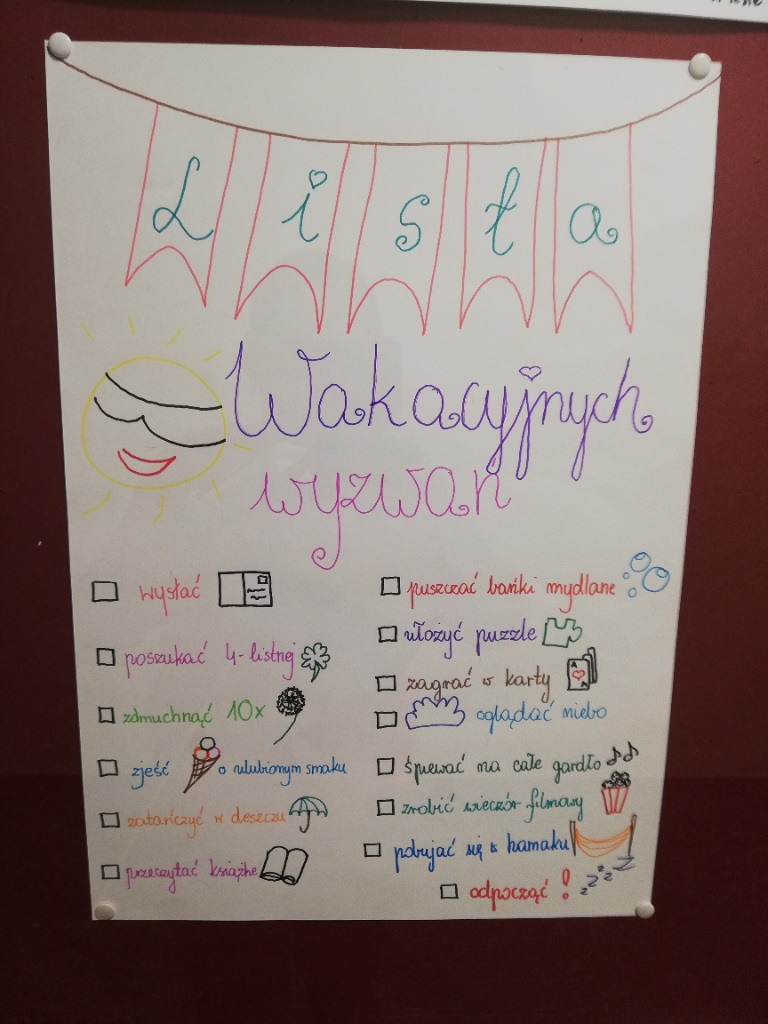 Lista
Wakacyjnych
wyzwań
wysłać
poszukać 4-listnej
zdmuchnąć 10x
zjeść o ulubionym smaku
zatańczyć w deszczu
przeczytać książkę
puszczać bańki mydlane
ułożyć puzzle
zagrać w karty
oglądać niebo
śpiewać na całe gardło
zrobić wieczór filmowy
pobujać się w hamaku
odpocząć!
zzzz